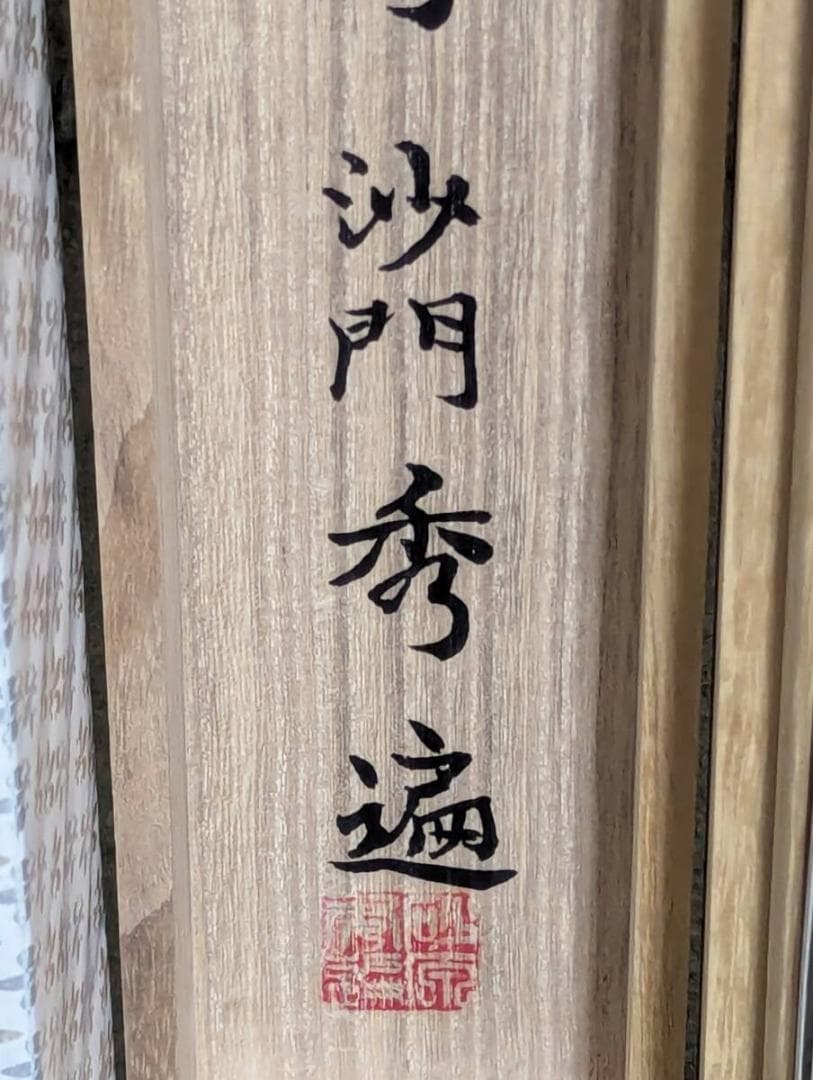 沙門秀遍